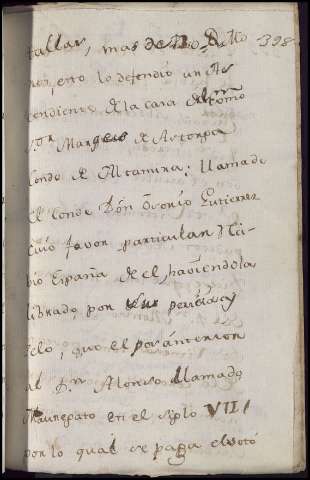 tallar, mas de
398
nos, esto lo defendió un As
cendiente de la casa del
S.or Marques de Astorga
Conde de Altamira; llamado
el Conde Dón Osorio Gutierrez
Cuio favor particular reci-
bio España de el haviendola
librado, por su pericia, y
zelo, que el por anterior
al D.n Alonso llamado
Mauregato en el siglo VIII
por lo qual se paga el votó